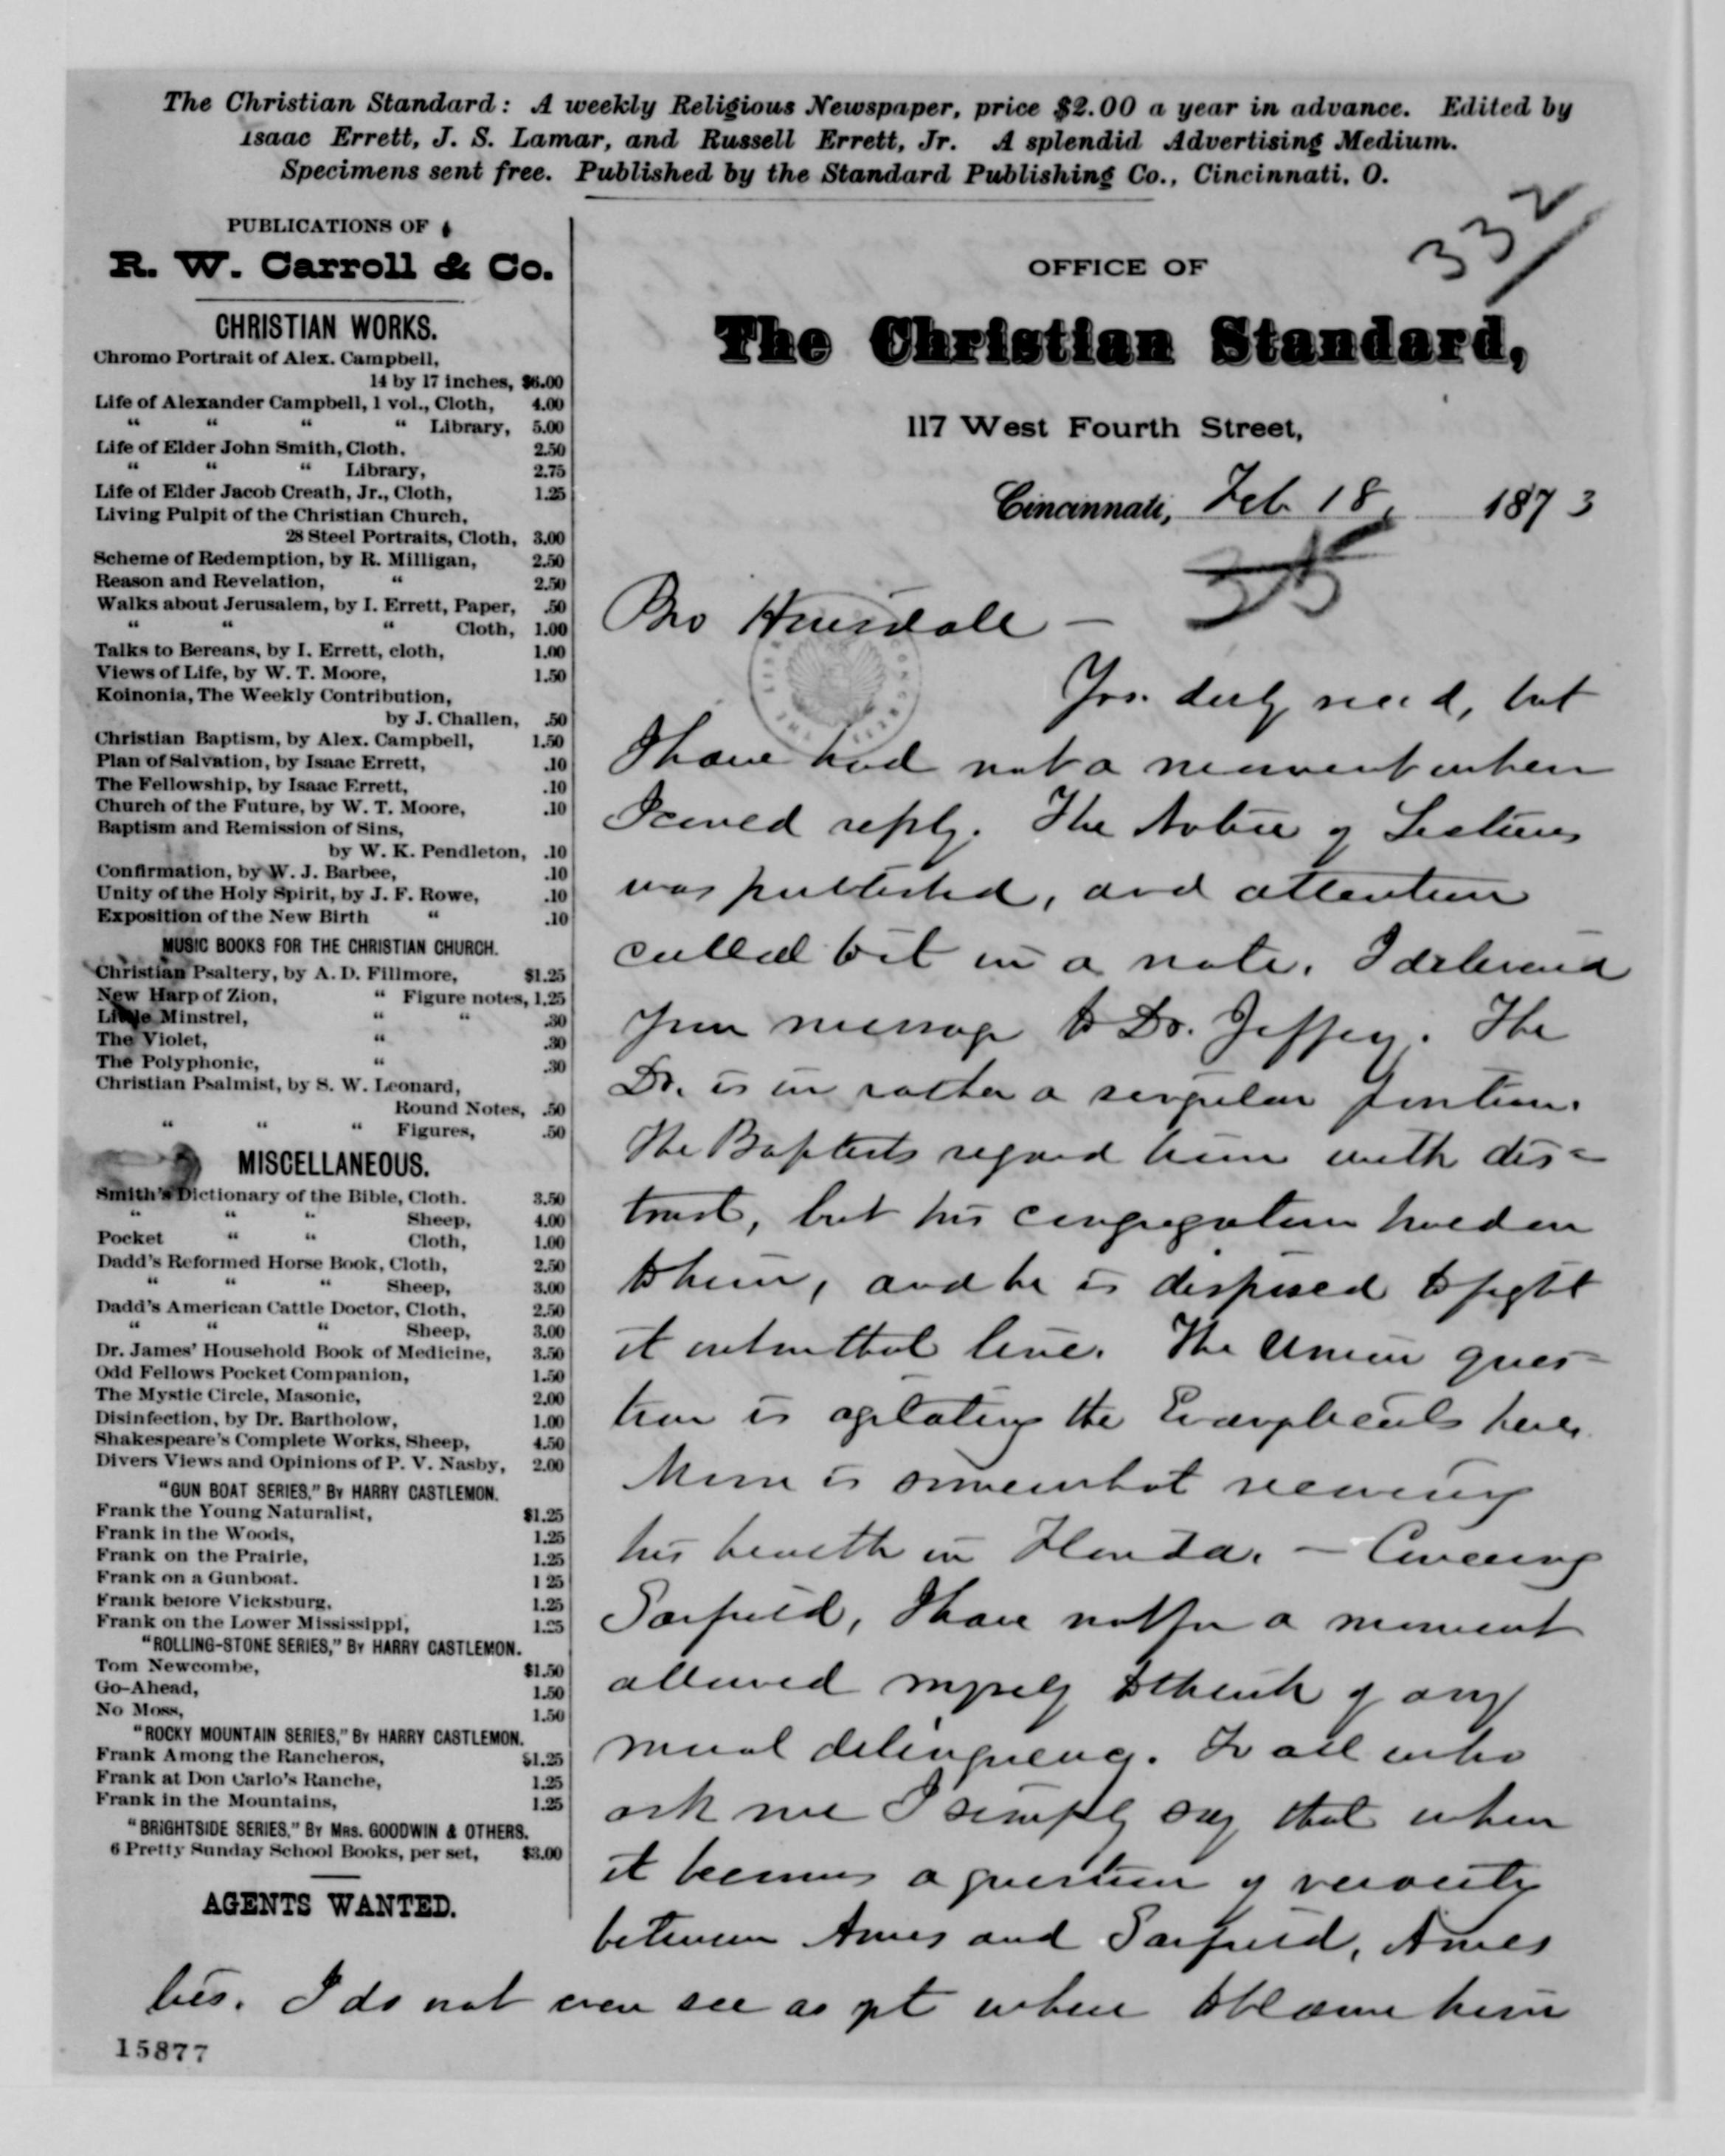 The Christian Standard: A weekly Religious Newspaper, price $2.00 a year in advance. Edited by
Isaac Errett, J. S. Lamar, and Russell Errett, Jr. A splendid Advertising Medium.
Specimens sent free. Published by the Standard Publishing Co., Cincinnati, O.
332
PUBLICATIONS OF
R. W. Carroll & Co.
CHRISTIAN WORKS.
Chromo Portrait of Alex. Campbell,
14 by 17 inches, $6.00
Life of Alexander Campbell, 1 vol., Cloth, 4.00
" " " " Library, 5.00
Life of Elder John Smith, Cloth, 2.50
" " " Library, 2.75
Life of Elder Jacob Creath, Jr., Cloth, 1.25
Living Pulpit of the Christian Church,
28 Steel Portraits, Cloth, 3.00
Scheme of Redemption, by R. Milligan, 2.50
Reason and Revelation, " 2.50
Walks about Jerusalem, by I. Errett, Paper, .50
" " " Cloth, 1.00
Talks to Bereans, by I. Errett, cloth, 1.00
Views of Life, by W. T. Moore, 1.50
Koinonia, The Weekly Contribution,
by J. Challen, .50
Christian Baptism, by Alex. Campbell, 1.50
Plan of Salvation, by Isaac Errett, .10
The Fellowship, by Isaac Errett, .10
Church of the Future, by W. T. Moore, .10
Baptism and Remission of Sins,
by W. K. Pendleton, .10
Confirmation, by W. J. Barbee, .10
Unity of the Holy Spirit, by J. F. Rowe, .10
Exposition of the New Birth " .10
MUSIC BOOKS FOR THE CHRISTIAN CHURCH.
Christian Psaltery, by A. D. Fillmore, $1.25
New Harp of Zion, " Figure notes, 1.25
Little Minstrel, " " .30
The Violet, " .30
The Polyphonic, " .30
Christian Psalmist, by S. W. Leonard,
Round Notes, .50
" " " Figures, .50
MISCELLANEOUS.
Smith's Dictionary of the Bible, Cloth. 3.50
" " " Sheep, 4.00
Pocket " " Cloth, 1.00
Dadd's Reformed Horse Book, Cloth, 2.50
" " " Sheep, 3.00
Dadd's American Cattle Doctor, Cloth, 2.50
" " " Sheep, 3.00
Dr. James' Household Book of Medicine, 3.50
Odd Fellows Pocket Companion, 1.50
The Mystic Circle, Masonic, 2.00
Disinfection, by Dr. Bartholow, 1.00
Shakespeare's Complete Works, Sheep, 4.50
Divers Views and Opinions of P. V. Nasby, 2.00
"GUN BOAT SERIES," BY HARRY CASTLEMON.
Frank the Young Naturalist, $1.25
Frank in the Woods, 1.25
Frank on the Prairie, 1.25
Frank on a Gunboat. 1 25
Frank before Vicksburg, 1.25
Frank on the Lower Mississippi, 1.25
"ROLLING-STONE SERIES," BY HARRY CASTLEMON.
Tom Newcombe, $1.50
Go-Ahead, 1.50
No Moss, 1.50
"ROCKY MOUNTAIN SERIES," BY HARRY CASTLEMON.
Frank Among the Rancheros, $1.25
Frank at Don Carlo's Ranche, 1.25
Frank in the Mountains, 1.25
"BRIGHTSIDE SERIES." BY MRS. GOODWIN & OTHERS.
6 Pretty Sunday School Books, per set, $3.00
AGENTS WANTED.
OFFICE OF
The Christian Standard,
117 West Fourth Street,
Cincinnati, Feb. 18, 1873
Bro Hinsdale —
Yrs. duly rec'd, but
I have had not a moment when
I could reply. The Notice of Lectures
was published, and attention
called to it in a note. I delivered
your message to Dr. Jeffrey. The
Dr. is in rather a singular position.
The Baptists regard him with dis-
trust, but his congregation hold on
to him, and he is disposed to fight
it out on that line. The Union ques-
tion is agitating the Evangelicals here.
Moore is somewhat
his health in Florida. — Concerning
Garfield, I have not for a moment
allowed myself to think of any
moral delinquency. To all who
ask me I simply say that when
it becomes a question of veracity
between Ames and Garfield, Ames
lies. I do not even see as yet where to blame him
15877